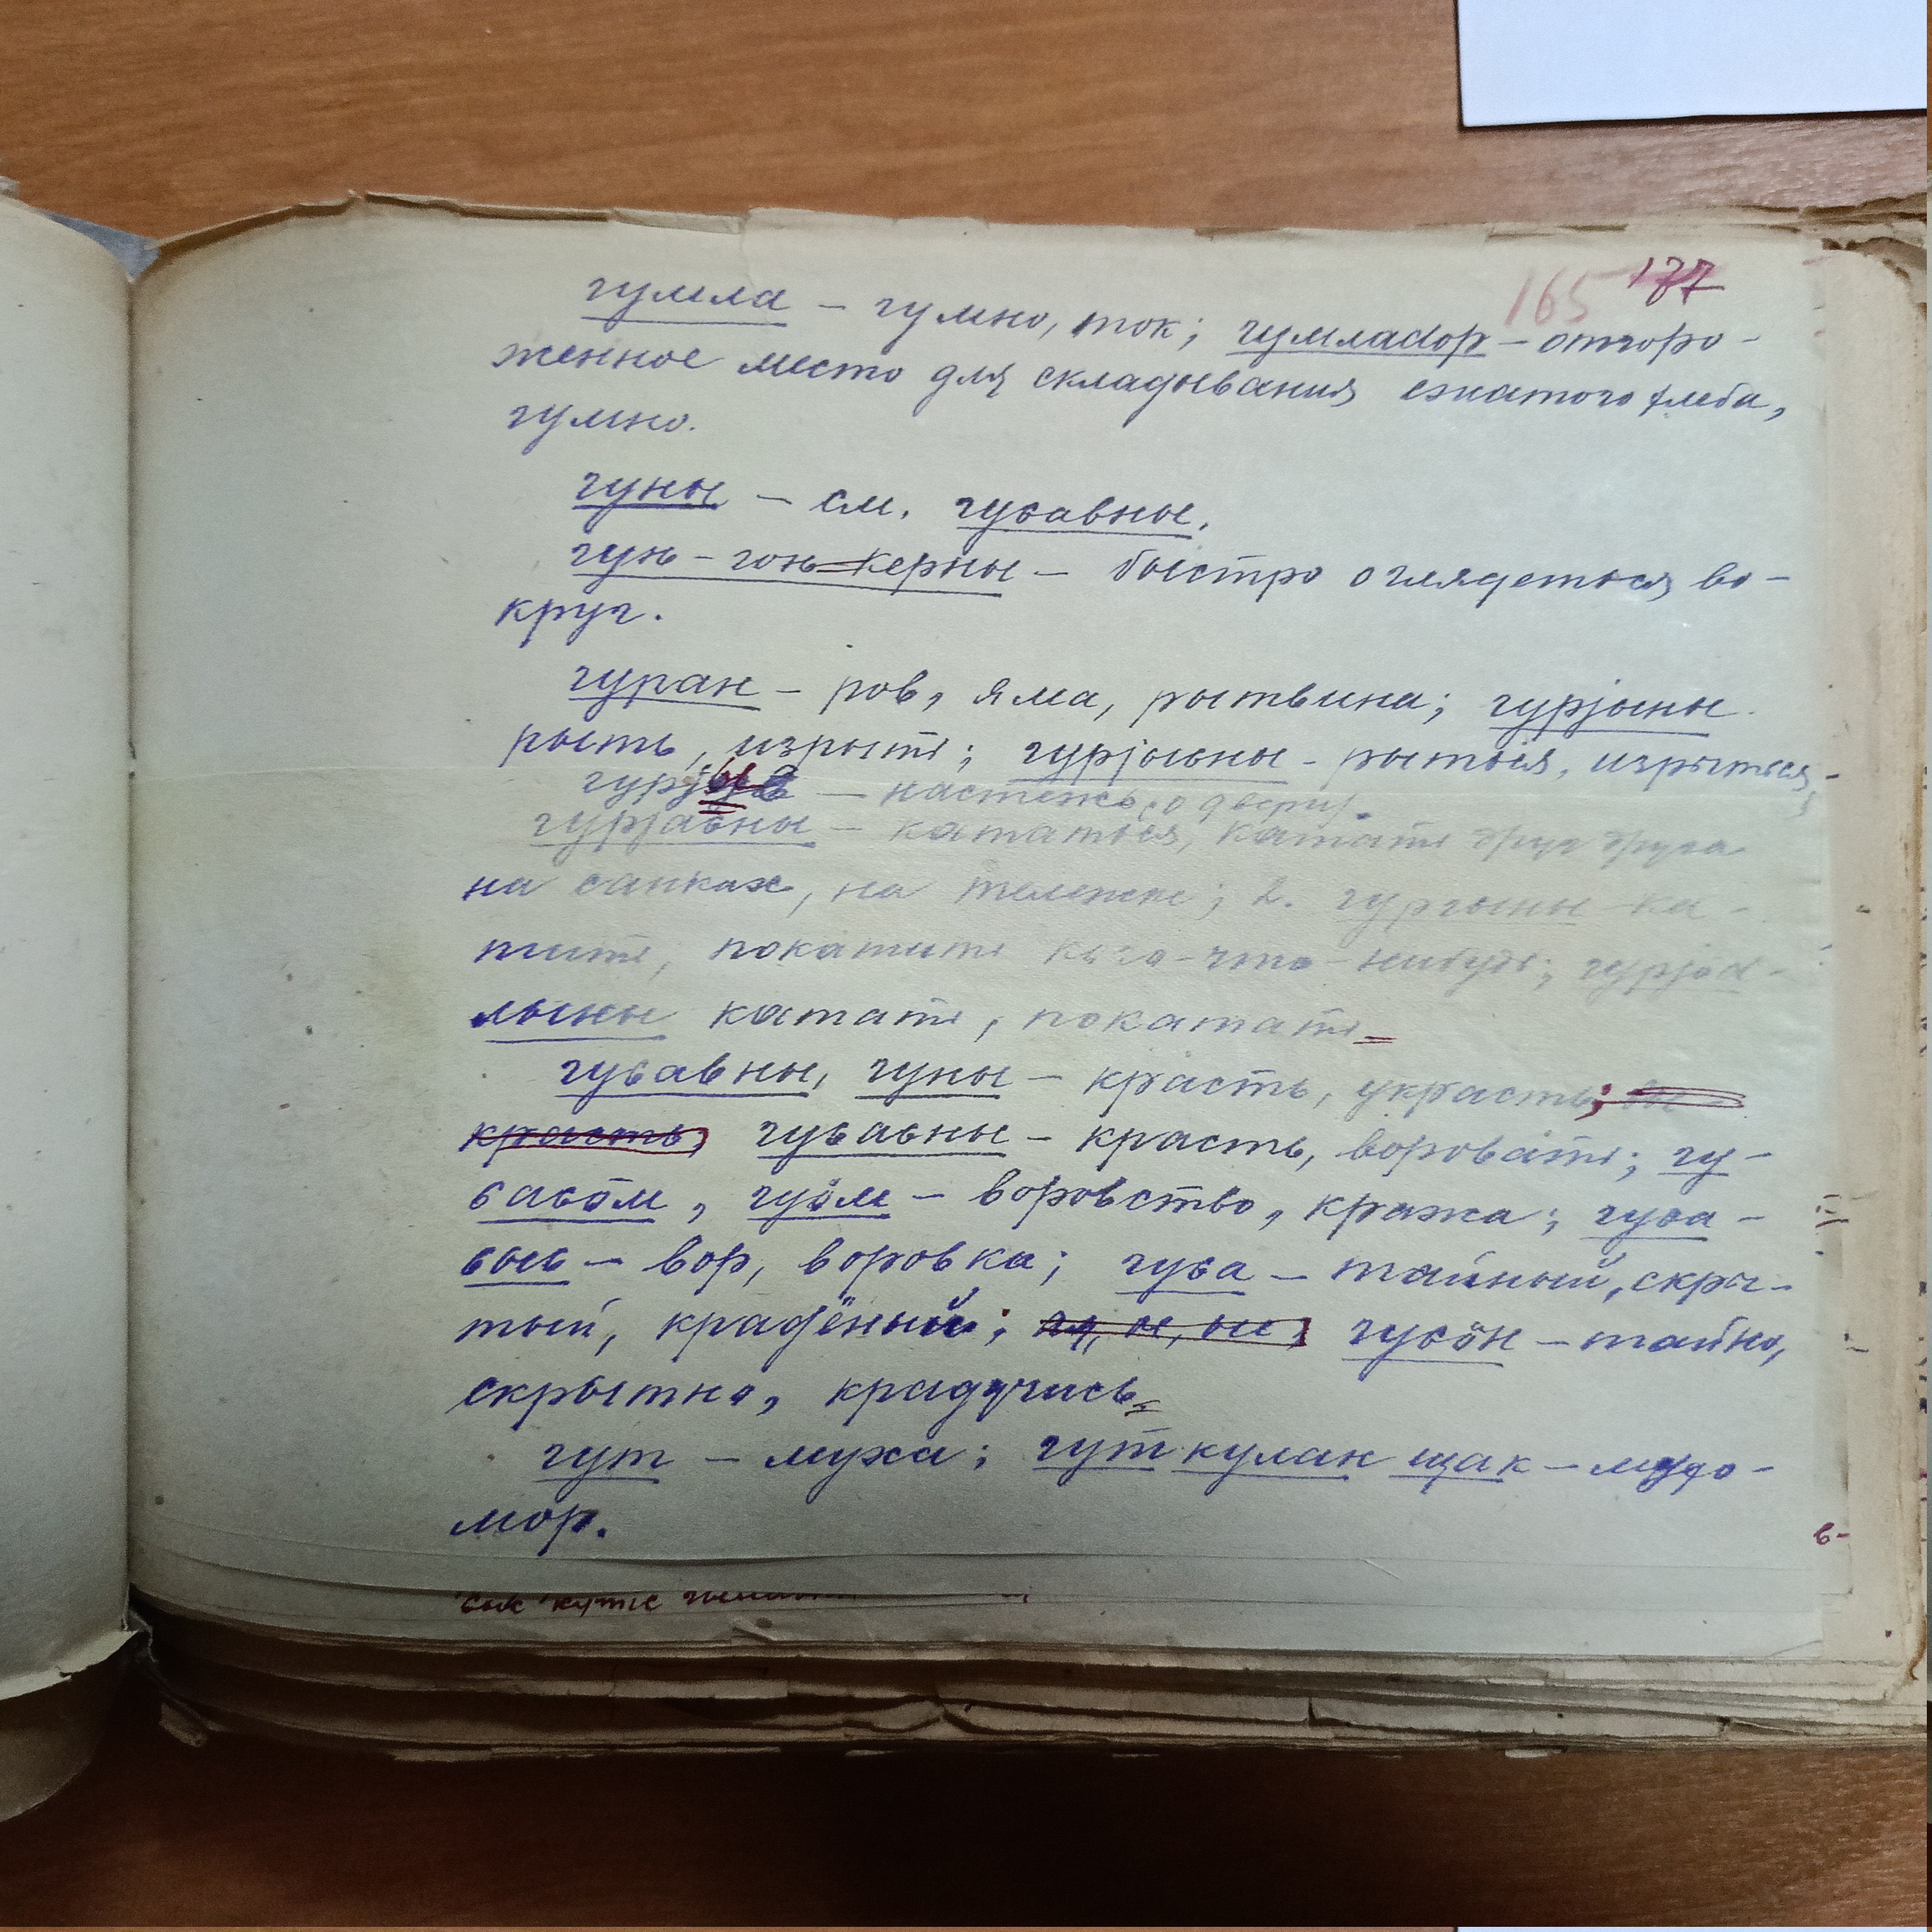 165 177
гумла – гумно, ток; гумладор – отгоро-
женное место для складывания сжатого хлеба,
гумно.
гуны – см. гуԍавны.
гунь-гонь керны – быстро оглядеться во-
круг.
гуран – ров, яма, рытвина; гурјыны
рыть, изрыть; гурјыԍны – рыться, изрыться,
– настежь (о двери).
гурјаԍны – кататься, катать друг друга
на санках, на тележке; 2. гургыны ка-
тить, покатить кого-что-нибудь; гурјӧд-
лыны катать, покатать
гуԍавны, гуны – красть, украсть;
красть, гуԍаԍны – красть, воровать; гу-
ԍаԍӧм, гуӧм – воровство, кража; гуԍа-
ԍыԍ – вор, воровка; гуԍа – тайный, скры-
тый, крадёный; гуԍӧн – тайно,
скрытно, крадучись
гут – муха; гут кулан щак – мухо-
мор.